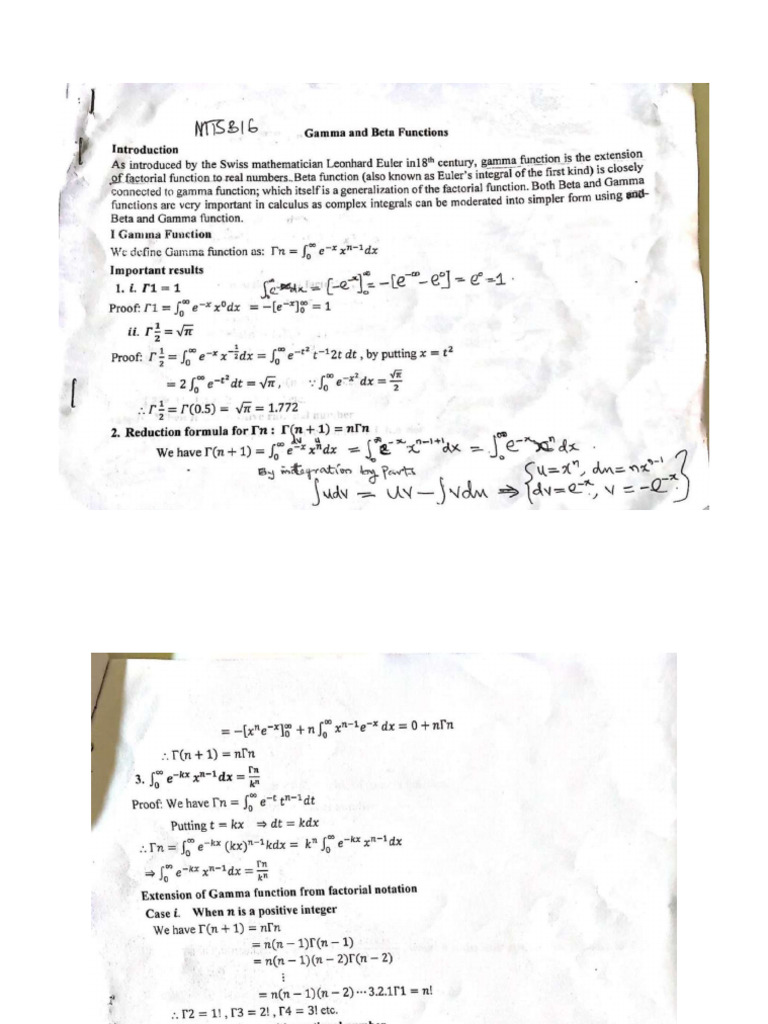 MTS 316
Gamma and Beta Functions
Introduction
As introduced by the Swiss mathematician Leonhard Euler in18th century, gamma function is the extension
of factorial function to real numbers. Beta function (also known as Euler's integral of the first kind) is closely
connected to gamma function; which itself is a generalization of the factorial function. Both Beta and Gamma
functions are very important in calculus as complex integrals can be moderated into simpler form using and
Beta and Gamma function.
I Gamma Function
We define Gamma function as: Γn = ∫₀^∞ e^−x x^n−1 dx
Important results
1. i. Γ1 = 1 ∫₀^∞ e^−x dx = [−e^−x]₀^∞ = −[e^−∞ − e^0] = e^0 = 1.
Proof: Γ1 = ∫₀^∞ e^−x x^0 dx = −[e^−x]₀^∞ = 1
ii. Γ½ = √π
Proof: Γ½ = ∫₀^∞ e^−x x^−½ dx = ∫₀^∞ e^−t² t^−1 2t dt , by putting x = t²
= 2 ∫₀^∞ e^−t² dt = √π , ∵ ∫₀^∞ e^−x² dx = √π/2
∴ Γ½ = Γ(0.5) = √π = 1.772
2. Reduction formula for Γn : Γ(n + 1) = nΓn
dv u
We have Γ(n + 1) = ∫₀^∞ e^−x x^n dx = ∫₀^∞ e^−x x^n−1+1 dx = ∫₀^∞ e^−x x^n dx .
By integration by Parts
∫udv = uv − ∫vdu ⇒ {u = x^n, du = nx^n−1
{dv = e^−x, v = −e^−x}
= −[x^n e^−x]₀^∞ + n ∫₀^∞ x^n−1 e^−x dx = 0 + nΓn
∴ Γ(n + 1) = nΓn
3. ∫₀^∞ e^−kx x^n−1 dx = Γn/k^n
Proof: We have Γn = ∫₀^∞ e^−t t^n−1 dt
Putting t = kx ⇒ dt = kdx
∴ Γn = ∫₀^∞ e^−kx (kx)^n−1 kdx = k^n ∫₀^∞ e^−kx x^n−1 dx
⇒ ∫₀^∞ e^−kx x^n−1 dx = Γn/k^n
Extension of Gamma function from factorial notation
Case i. When n is a positive integer
We have Γ(n + 1) = nΓn
= n(n − 1)Γ(n − 1)
= n(n − 1)(n − 2)Γ(n − 2)
⋮
= n(n − 1)(n − 2) ⋯ 3.2.1Γ1 = n!
∴ Γ2 = 1! , Γ3 = 2! , Γ4 = 3! etc.